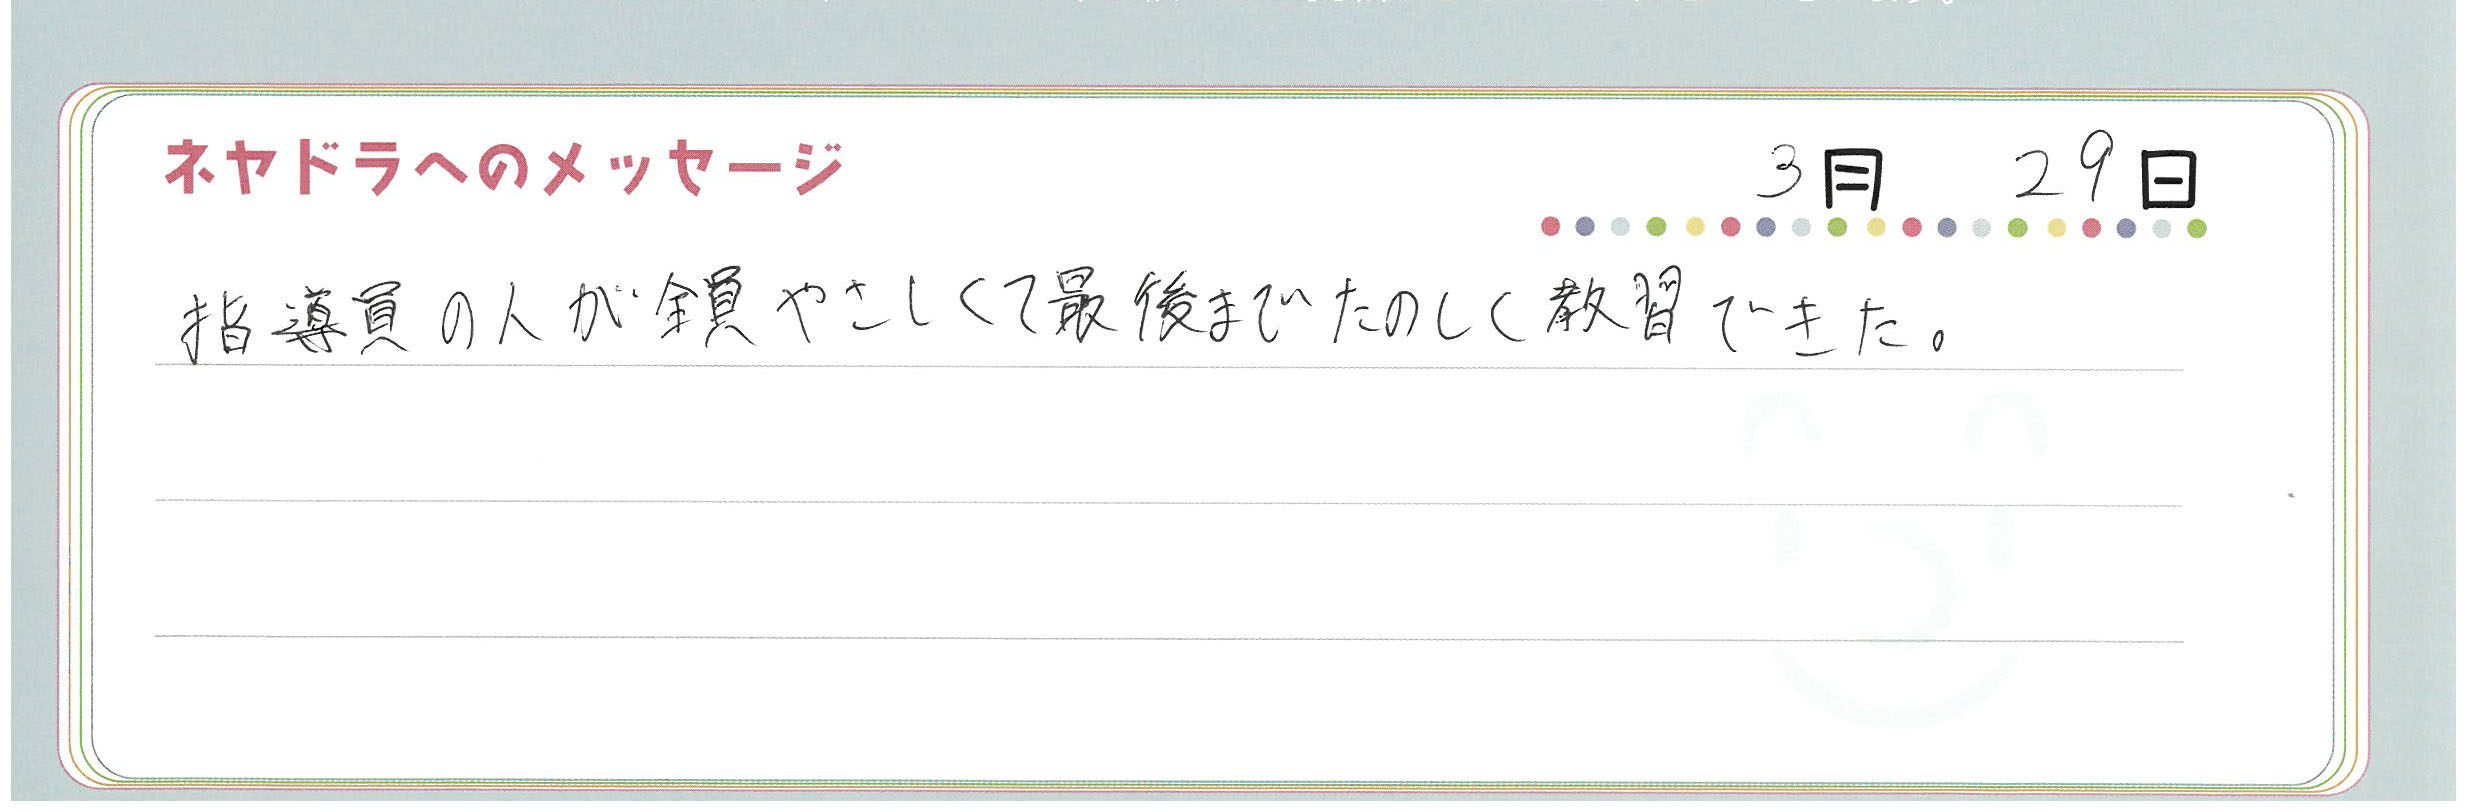 ネヤドラへのメッセージ
3月 29日
指導員の人が全員やさしくて最後までたのしく教習できた。